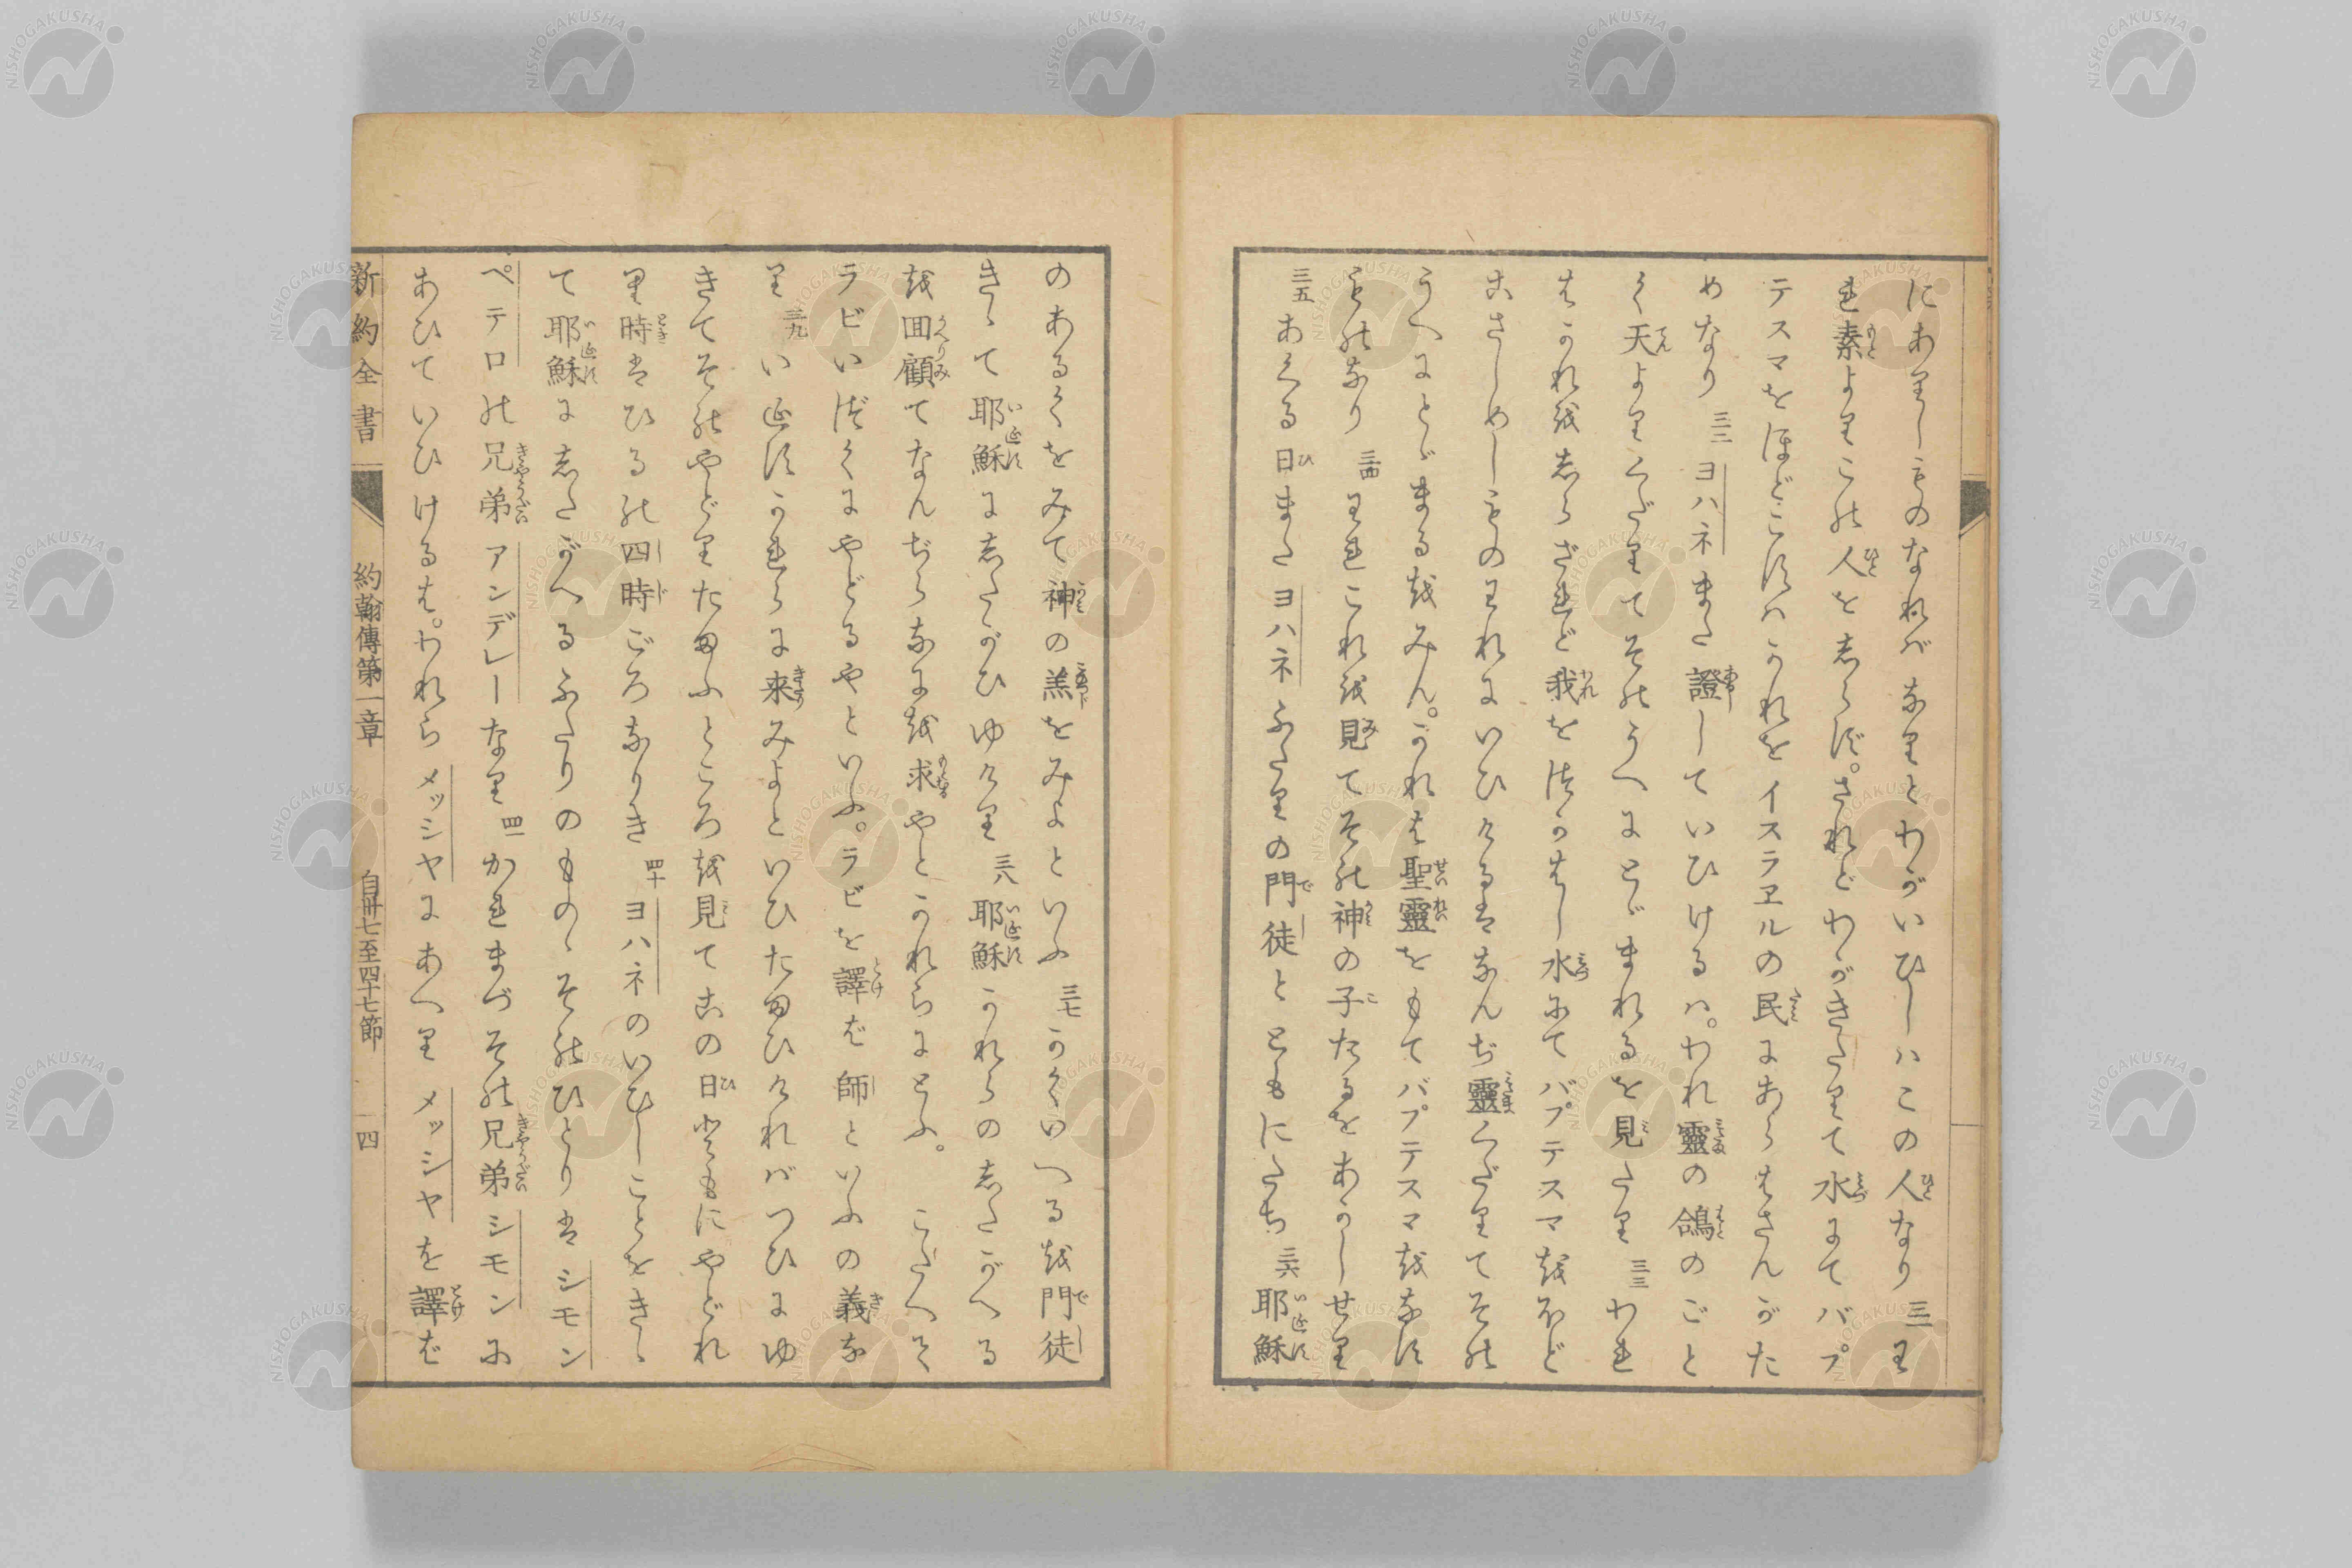 にありしものなればなりとわがいひしハこの人なり 三一 わ
れ素よりこの人を志らず。されどわがきたりて水にてバプ
テスマをほどこすハかれをイスラヱルの民にあらはさんがた
めなり 三二 ヨハネまた證していひけるハ。われ靈の鴿のごと
く天よりくだりてそのうへにとゞまれるを見たり 三三 われ
はかれを志らざれど我をつかはし水にてバプテスマをほど
こさしめしものわれにいひけるはなんぢ靈くだりてその
うへにとゞまるをみん。かれは聖靈をもてバプテスマをなす
ものなり 三四 われこれを見てその神の子たるをあかしせり
三五 あくる日またヨハネふたりの門徒とともにたち 三六 耶穌
のあるくをみて神の羔をみよといふ 三七 かくいへるを門徒
きゝて耶穌に志たがひゆけり 三八 耶穌かれらの志たがへる
を囬顧てなんぢらなにを求やとかれらにとふ。こたへて
ラビいづくにやどるやといふ。ラビを譯ば師といふの義な
り 三九 いゑすかれらに来みよといひたまひければつひにゆ
きてそのやどりたまふところを見てこの日ともにやどれ
り時はひるの四時ごろなりき 四十 ヨハネのいひしことをきゝ
て耶穌に志たがへるふたりのものゝそのひとりはシモン
ペテロの兄弟アンデレーなり 四一 かれまづその兄弟シモンに
あひていひけるは。われらメッシヤにあへりメッシヤを譯ば
新約全書 約翰傳第一章 自卅七至四十七節 四
NISHOGAKUSHA